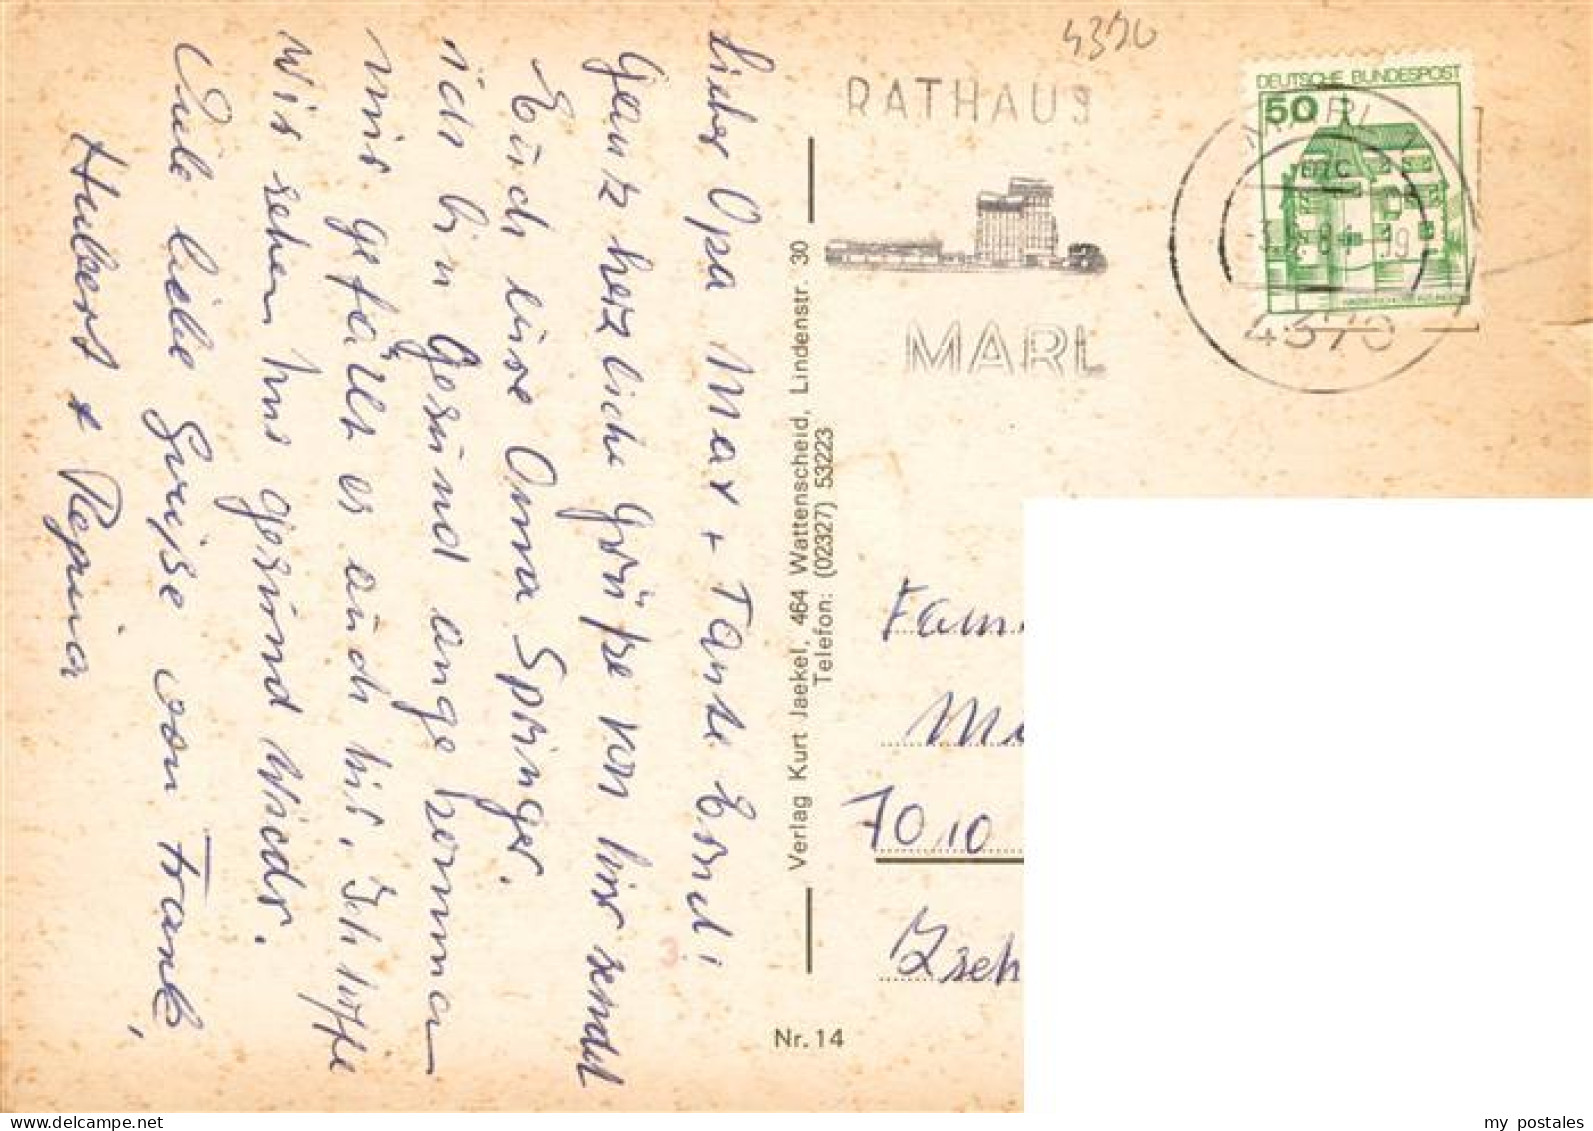 Lieber Opa Max + Tante Erna!
Ganz herzliche Grüße von hier sendet
Euch eure Oma Springer.
ich bin Gesund angekommen
mir gefällt es auch hir. Ich hoffe
wir sehen uns gesund wieder.
Viele liebe Grüße von Frank,
Hubert + Regina
Verlag Kurt Jaekel, 464 Wattenscheid, Lindenstr. 30
Telefon: (02327) 53223
Nr. 14
4370
RATHAUS
MARL
DEUTSCHE BUNDESPOST
50
MARL
4370
Fam
7010
Zsch
my postales